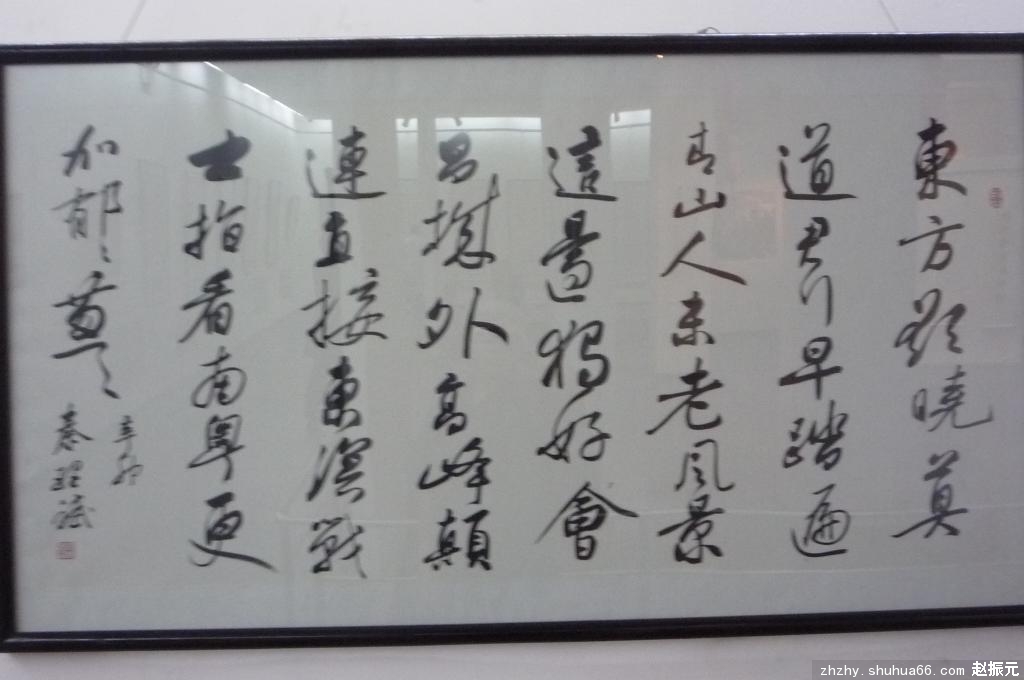 東方欲曉莫
道君行早踏遍
青山人未老風景
這邊獨好會
昌城外高峰顛
連直接東溟戰
士指看南粤更
加郁〻葱〻
辛卯
zhzhy.shuhua66.com 赵振元